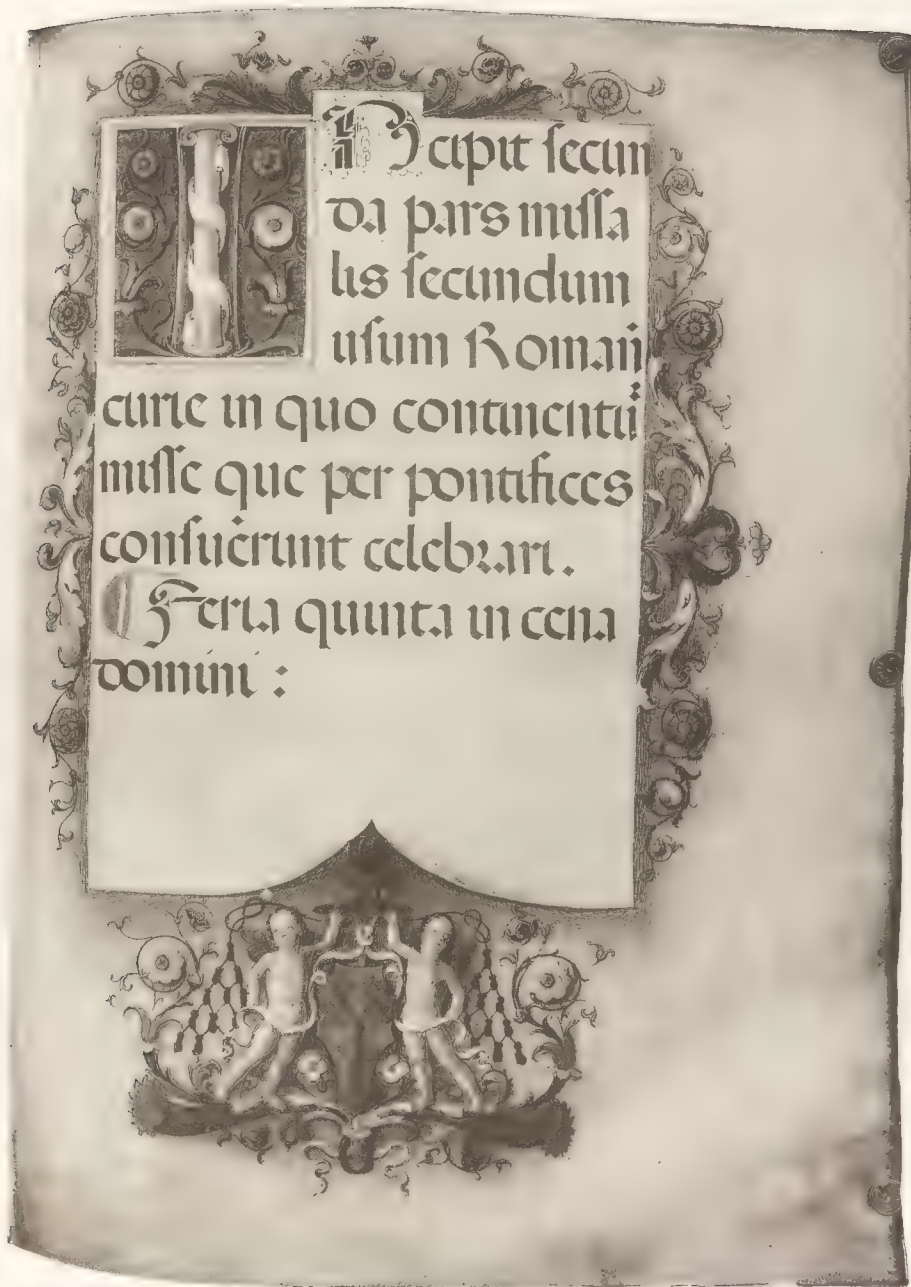 INcipit secun
da pars missa
lis secundum
usum Roman̄
curie in quo continentᷣ
misse que per pontifices
consueũrunt celebrari.
Feria quinta in cena
domini :